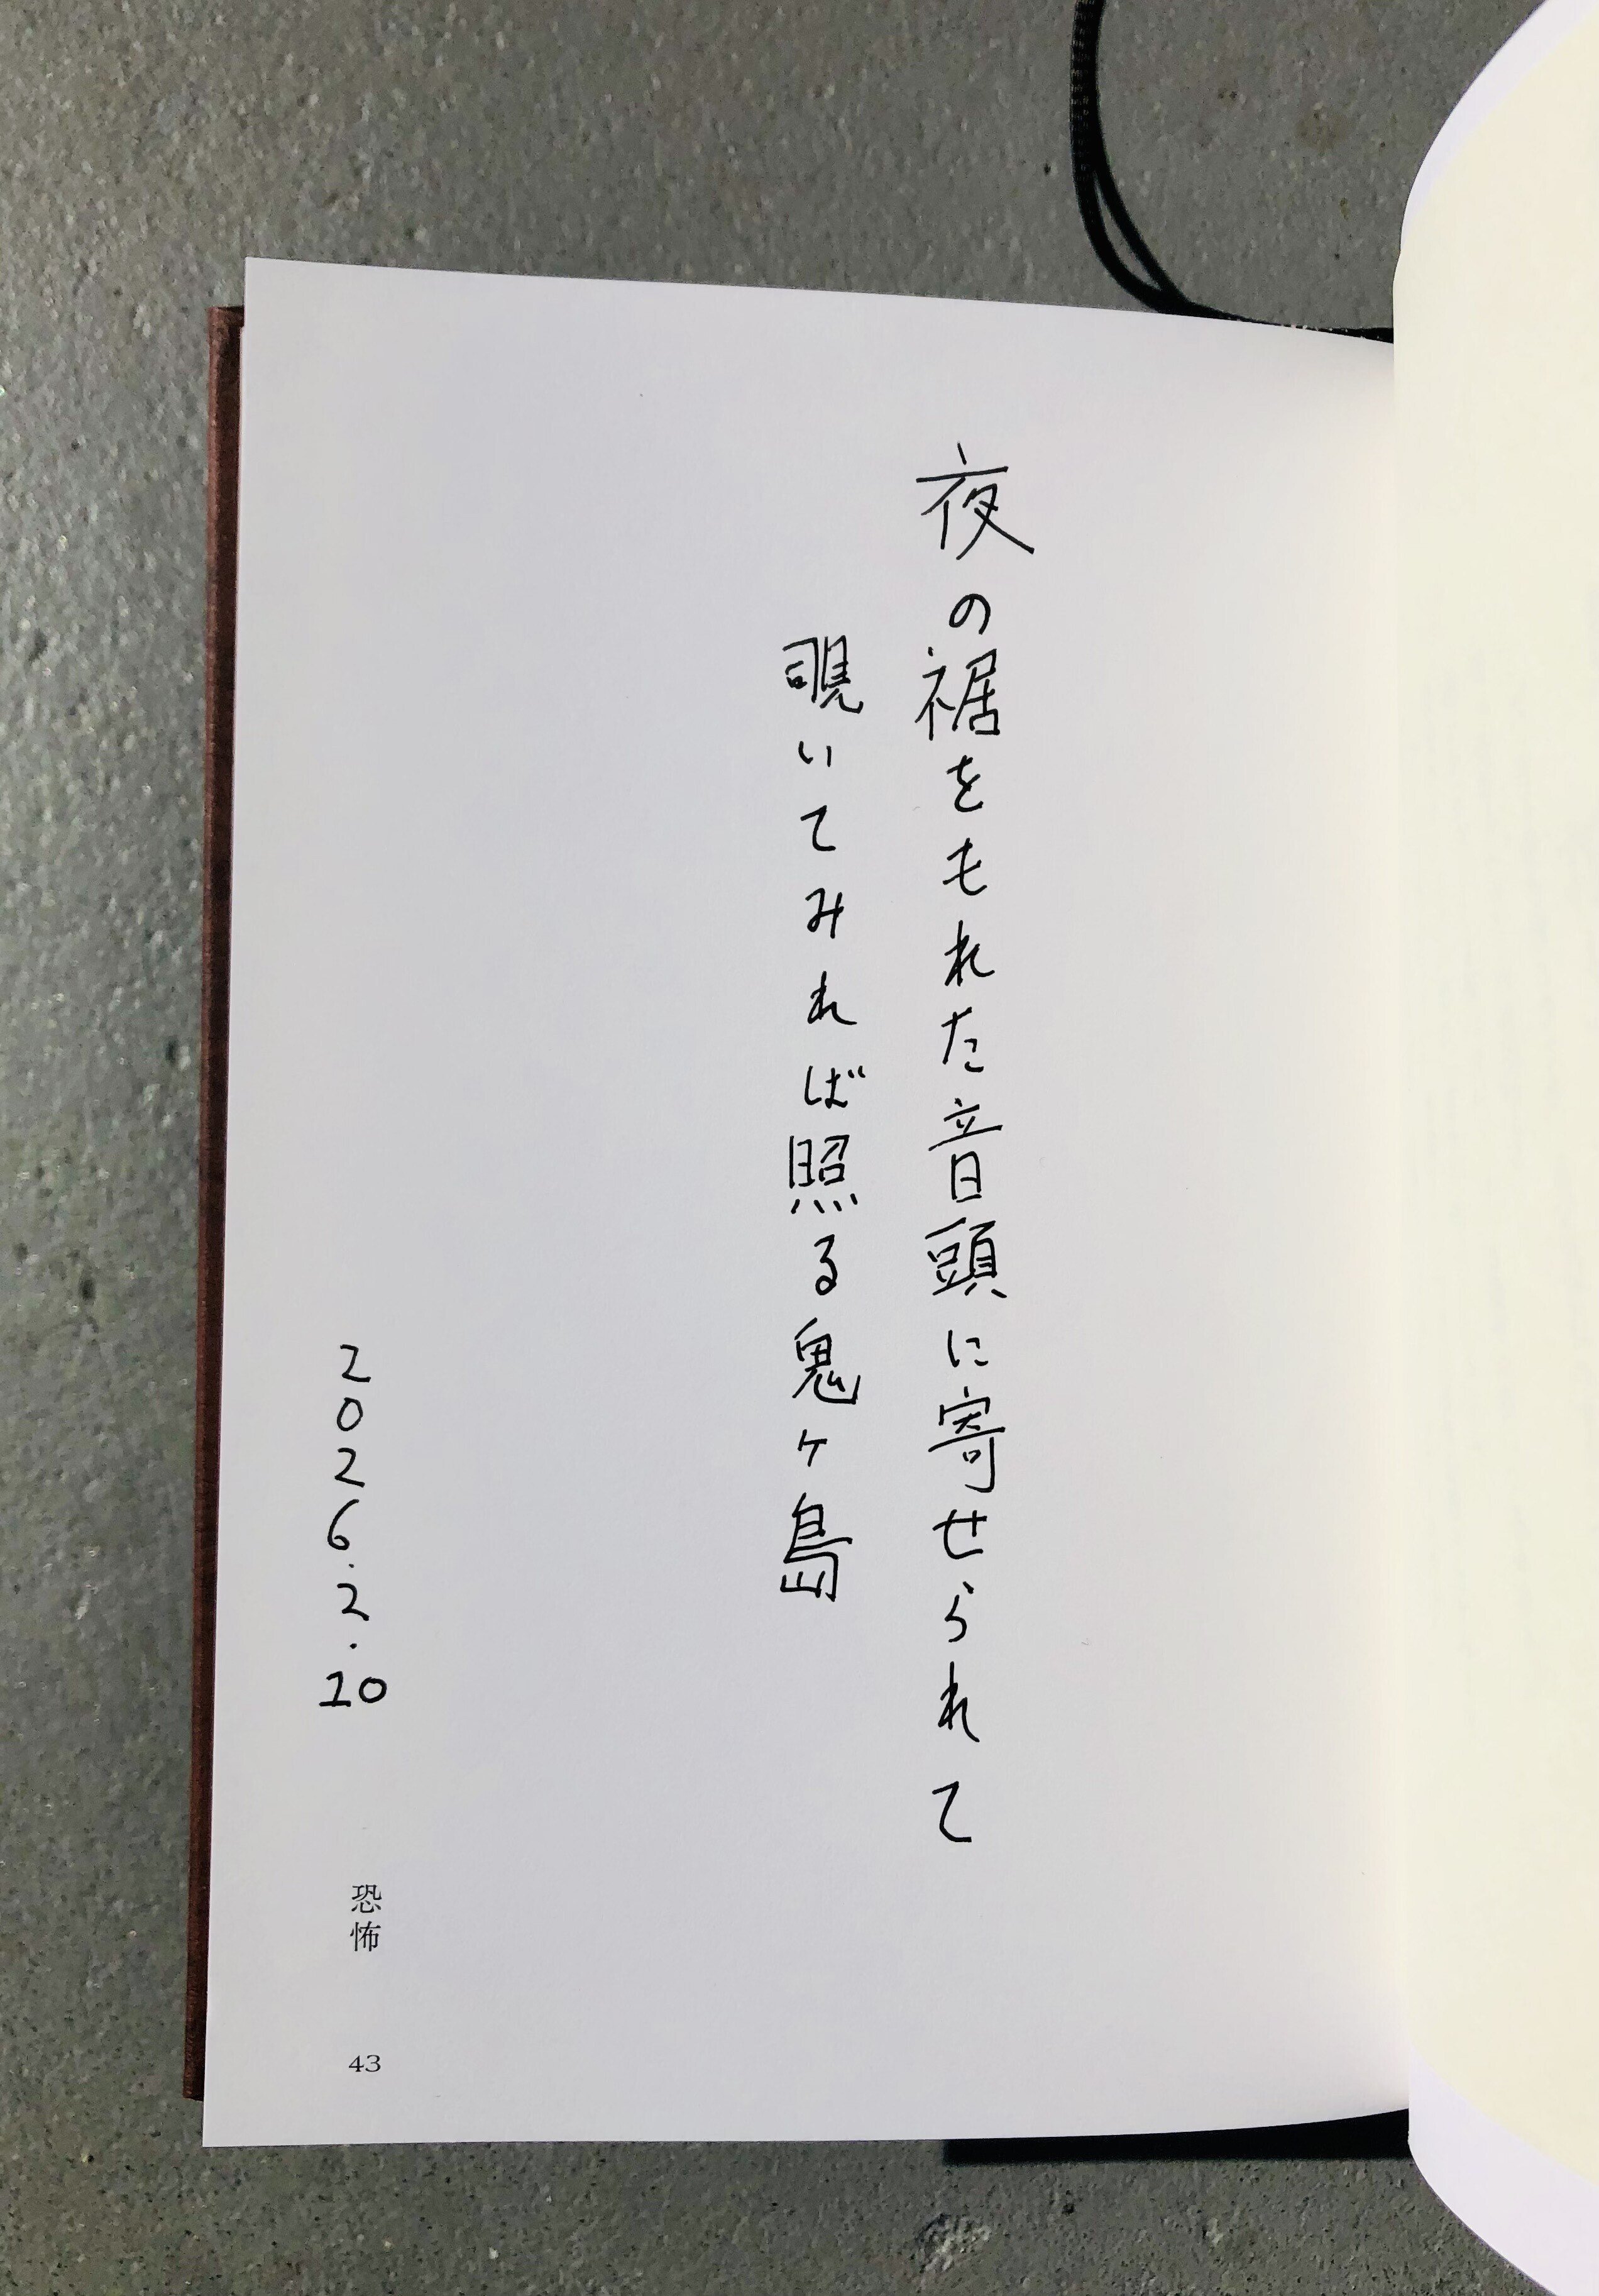 夜の裾をもれた音頭に寄せられて
覗いてみれば照る鬼ヶ島
2026.2.20
恐怖
43